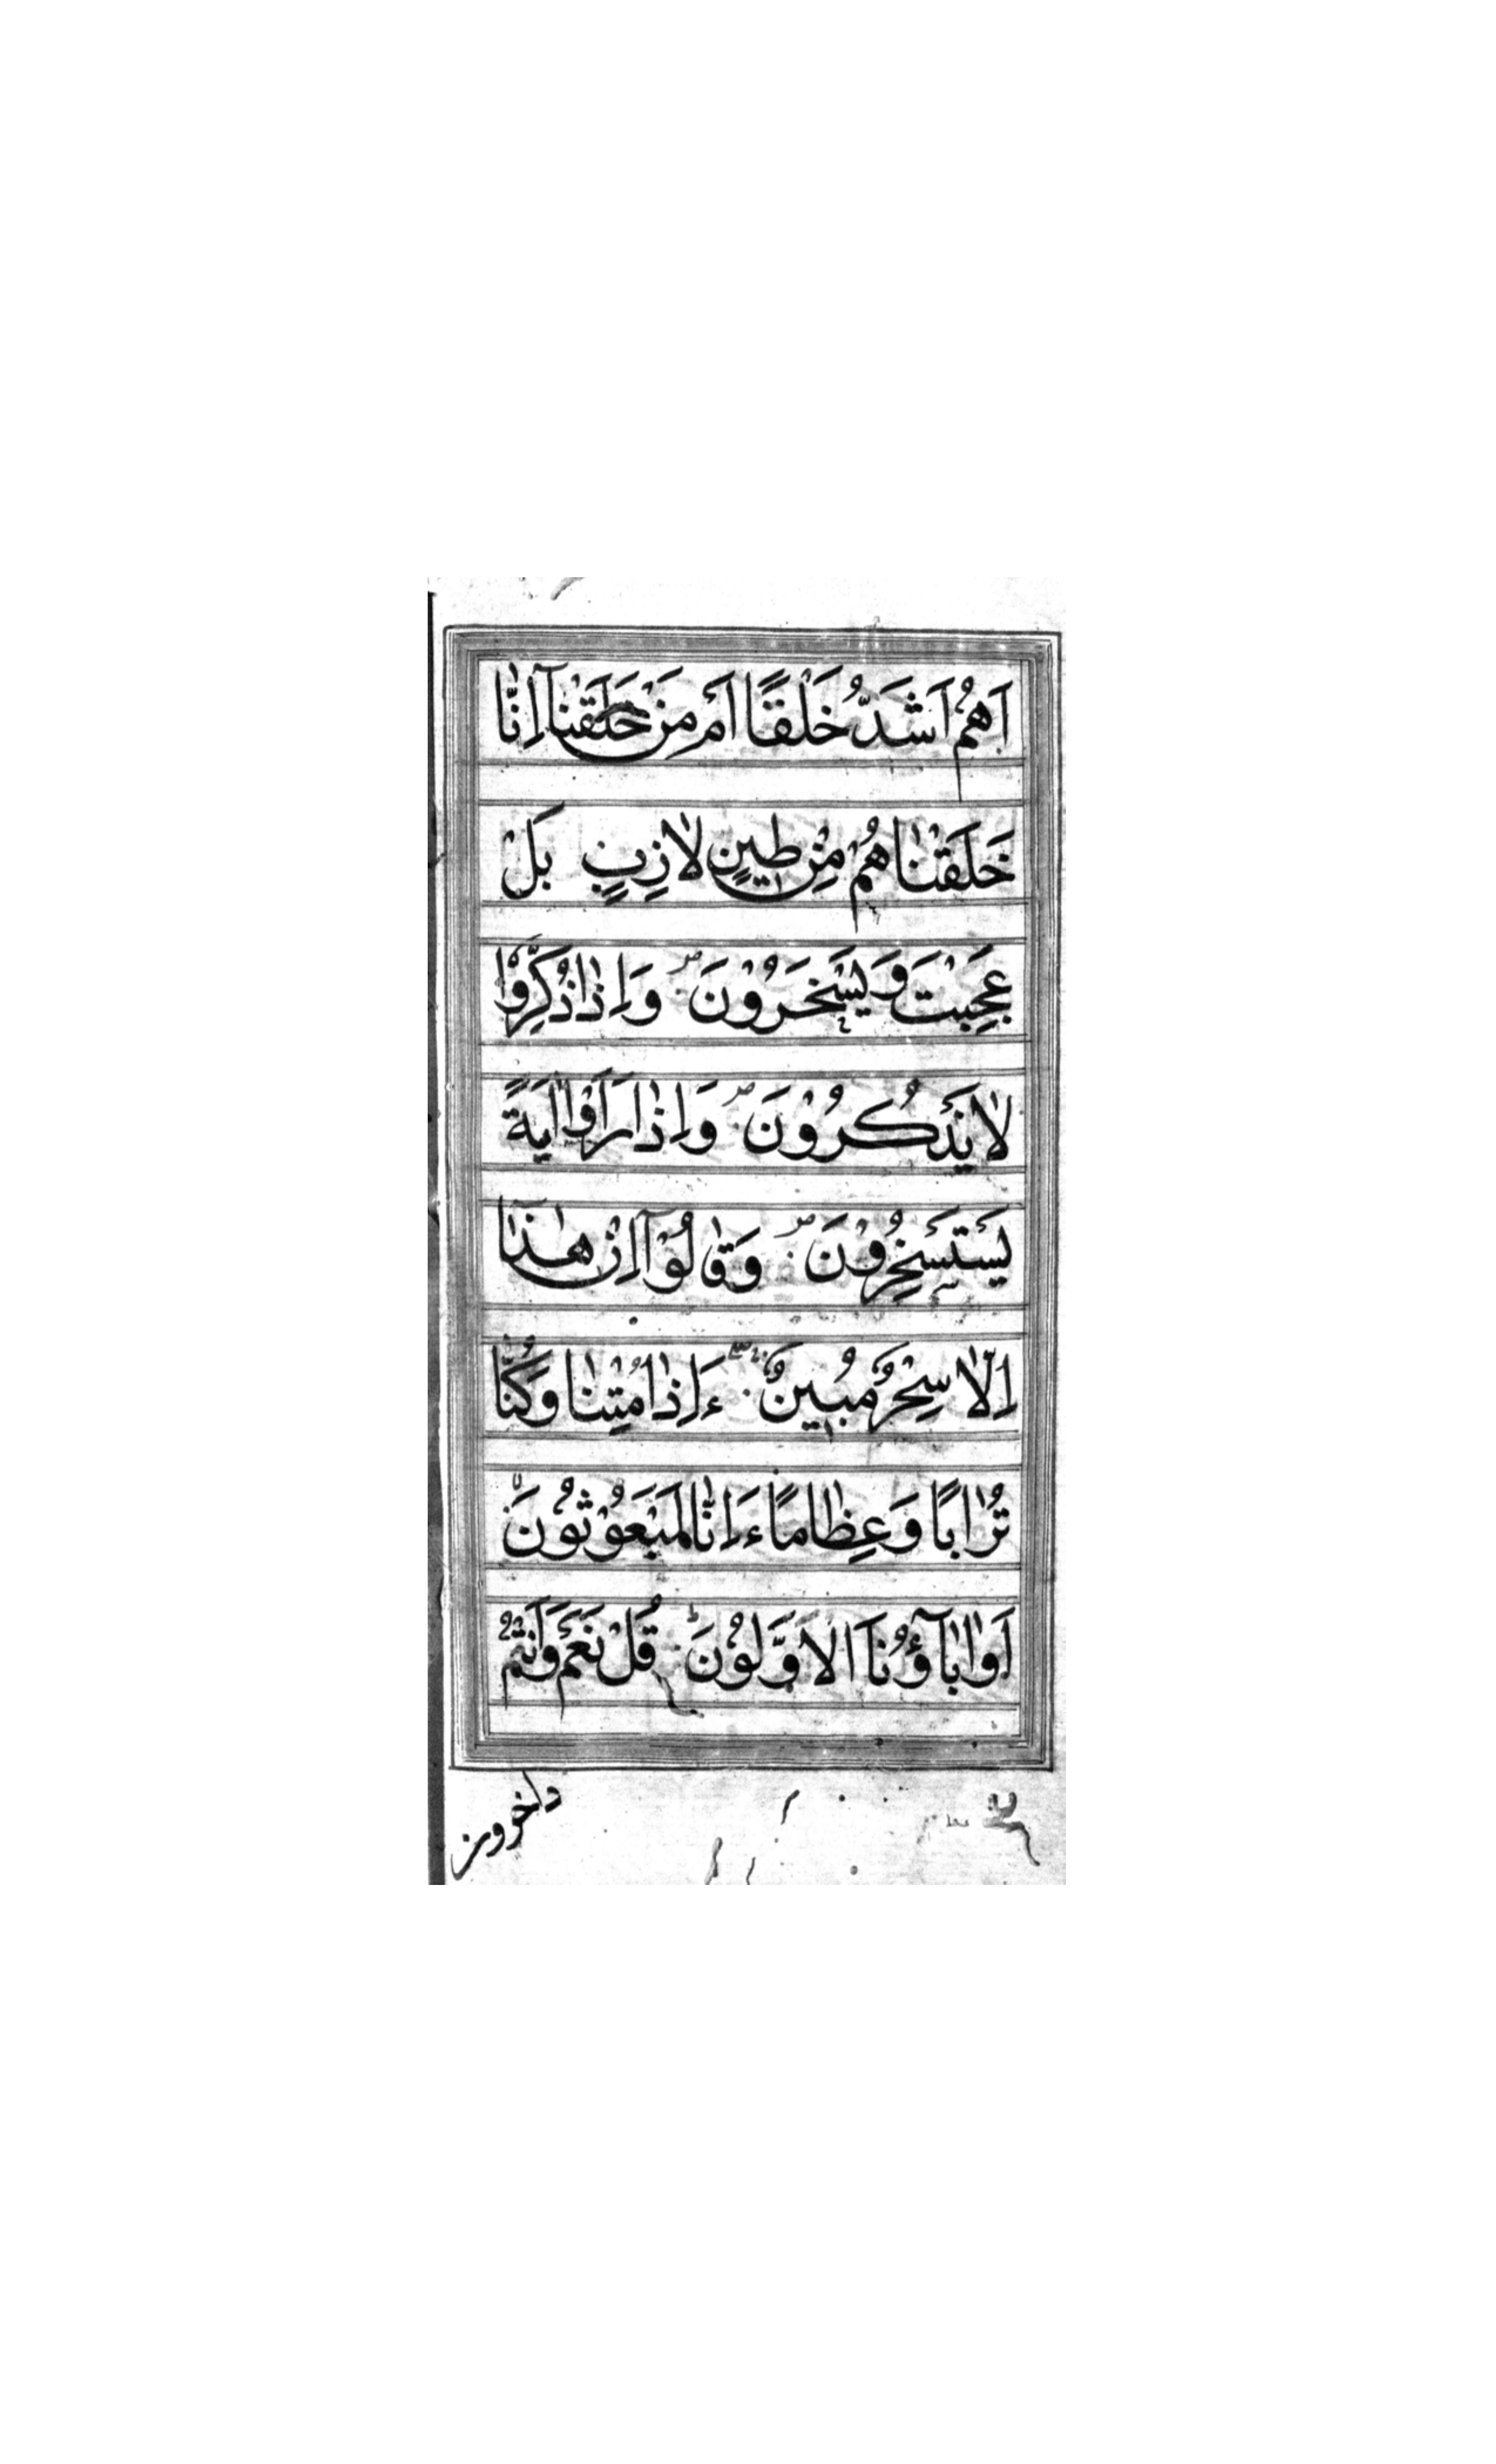 اَهُمْ اَشَدُّ خَلْقًا اَمْ مَنْ خَلَقْنَآ اِنَّا
خَلَقْنٰاهُمْ مِنْ طِينٍ لاٰزِبٍ بَلْ
عَجِبْتَ وَيَسْخَرُوْنَ وَاِذٰا ذُكِّرُوْا
لاٰ يَذْكُرُوْنَ وَاِذٰا رَاَوْا اٰيَةً
يَسْتَسْخِرُوْنَ وَقٰالُوْآ اِنْ هٰذٰا
اِلّاٰ سِحْرٌ مُبِينٌ ءَاِذٰا مُتْنٰا وَكُنّٰا
تُرٰابًا وَعِظٰامًا ءَاِنّٰا لَمَبْعَوُثوُنَ
اَوَاٰبٰآؤُنَا الاَوَّلوُنَ قُلْ نَعَمْ وَاَنْتُمْ
داخرون